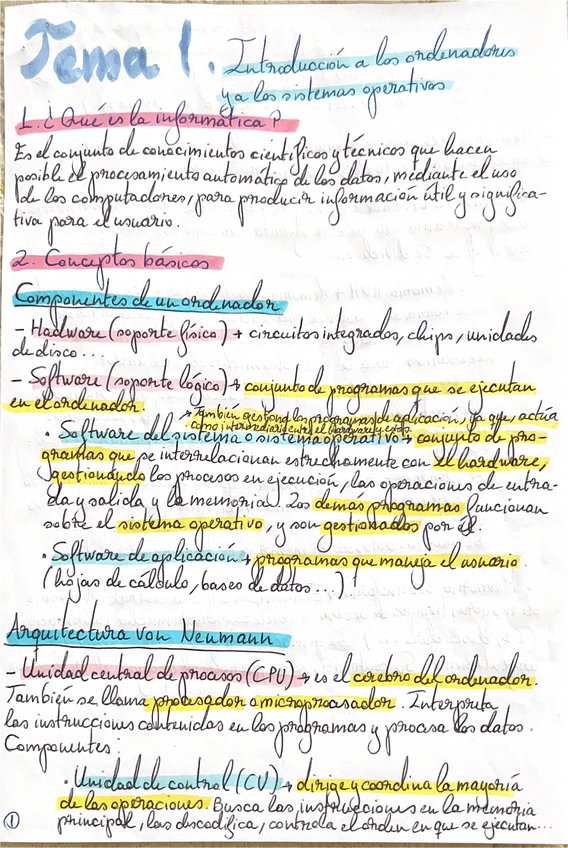 Tema 1. Introducción a los ordenadores
y a los sistemas operativos
1. ¿Qué es la informática?
Es el conjunto de conocimientos científicos y técnicos que hacen
posible el procesamiento automático de los datos, mediante el uso
de los computadores, para producir información útil y significa-
tiva para el usuario.
2. Conceptos básicos
Componentes de un ordenador
- Hadware (soporte físico) → circuitos integrados, chips, unidades
de disco...
- Software (soporte lógico) → conjunto de programas que se ejecutan
en el ordenador.
→ También gestiona los programas de aplicación, ya que, actúa
como intermediario entre el hardware y estos
• Software del sistema o sistema operativo → conjunto de pro-
gramas que se interrelacionan estrechamente con el hardware,
gestionando los procesos en ejecución, las operaciones de entra-
da y salida y la memoria. Los demás programas funcionan
sobre el sistema operativo, y son gestionados por él.
• Software de aplicación → programas que maneja el usuario
(hojas de cálculo, bases de datos...)
Arquitectura von Neumann
- Unidad central de procesos (CPU) → es el cerebro del ordenador.
También se llama procesador o microprocesador. Interpreta
las instrucciones contenidas en los programas y procesa los datos.
Componentes:
• Unidad de control (CU) → dirige y coordina la mayoría
de las operaciones. Busca las instrucciones en la memoria
principal, las descodifica, controla el orden en que se ejecutan...
1